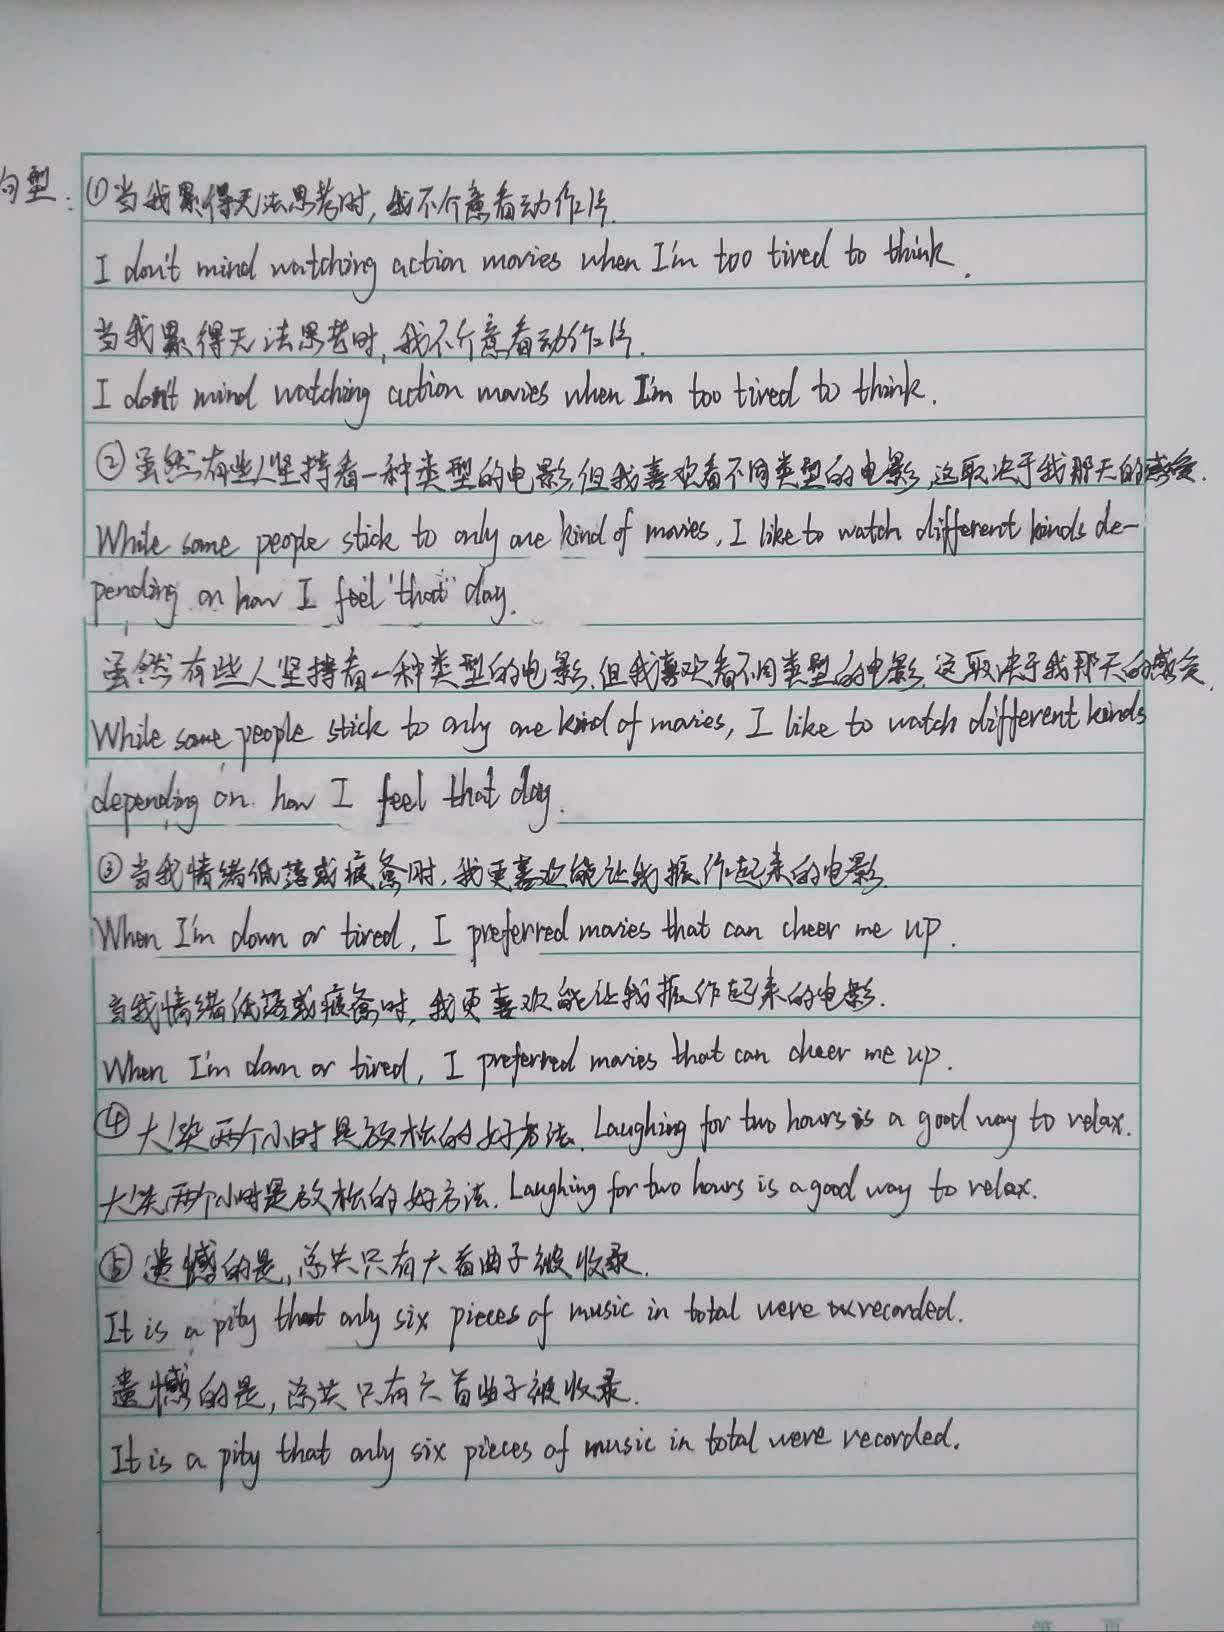 句型:①当我累得无法思考时,我不介意看动作片.
I don't mind watching action movies when I'm too tired to think.
当我累得无法思考时,我不介意看动作片.
I don't mind watching action movies when I'm too tired to think.
②虽然有些人坚持看一种类型的电影,但我喜欢看不同类型的电影,这取决于我那天的感受.
While some people stick to only one kind of movies, I like to watch different kinds de-
pending on how I feel that day.
虽然有些人坚持看一种类型的电影,但我喜欢看不同类型的电影,这取决于我那天的感受.
While some people stick to only one kind of movies, I like to watch different kinds
depending on how I feel that day.
③当我情绪低落或疲惫时,我更喜欢能让我振作起来的电影.
When I'm down or tired, I preferred movies that can cheer me up.
当我情绪低落或疲惫时,我更喜欢能让我振作起来的电影.
When I'm down or tired, I preferred movies that can cheer me up.
④大笑两个小时是放松的好方法. Laughing for two hours is a good way to relax.
大笑两个小时是放松的好方法. Laughing for two hours is a good way to relax.
⑤遗憾的是,总共只有六首曲子被收录.
It is a pity that only six pieces of music in total were recorded.
遗憾的是,总共只有六首曲子被收录.
It is a pity that only six pieces of music in total were recorded.
第 页